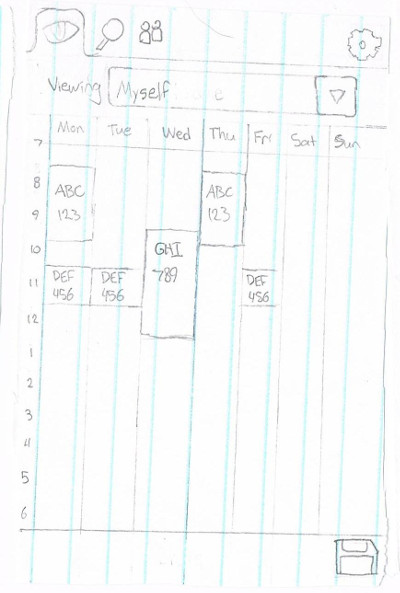 Viewing Myself
Mon Tue Wed Thu Fri Sat Sun
7
8
ABC
123
ABC
123
9
10
GHI
789
11
DEF
456
DEF
456
DEF
456
12
1
2
3
4
5
6